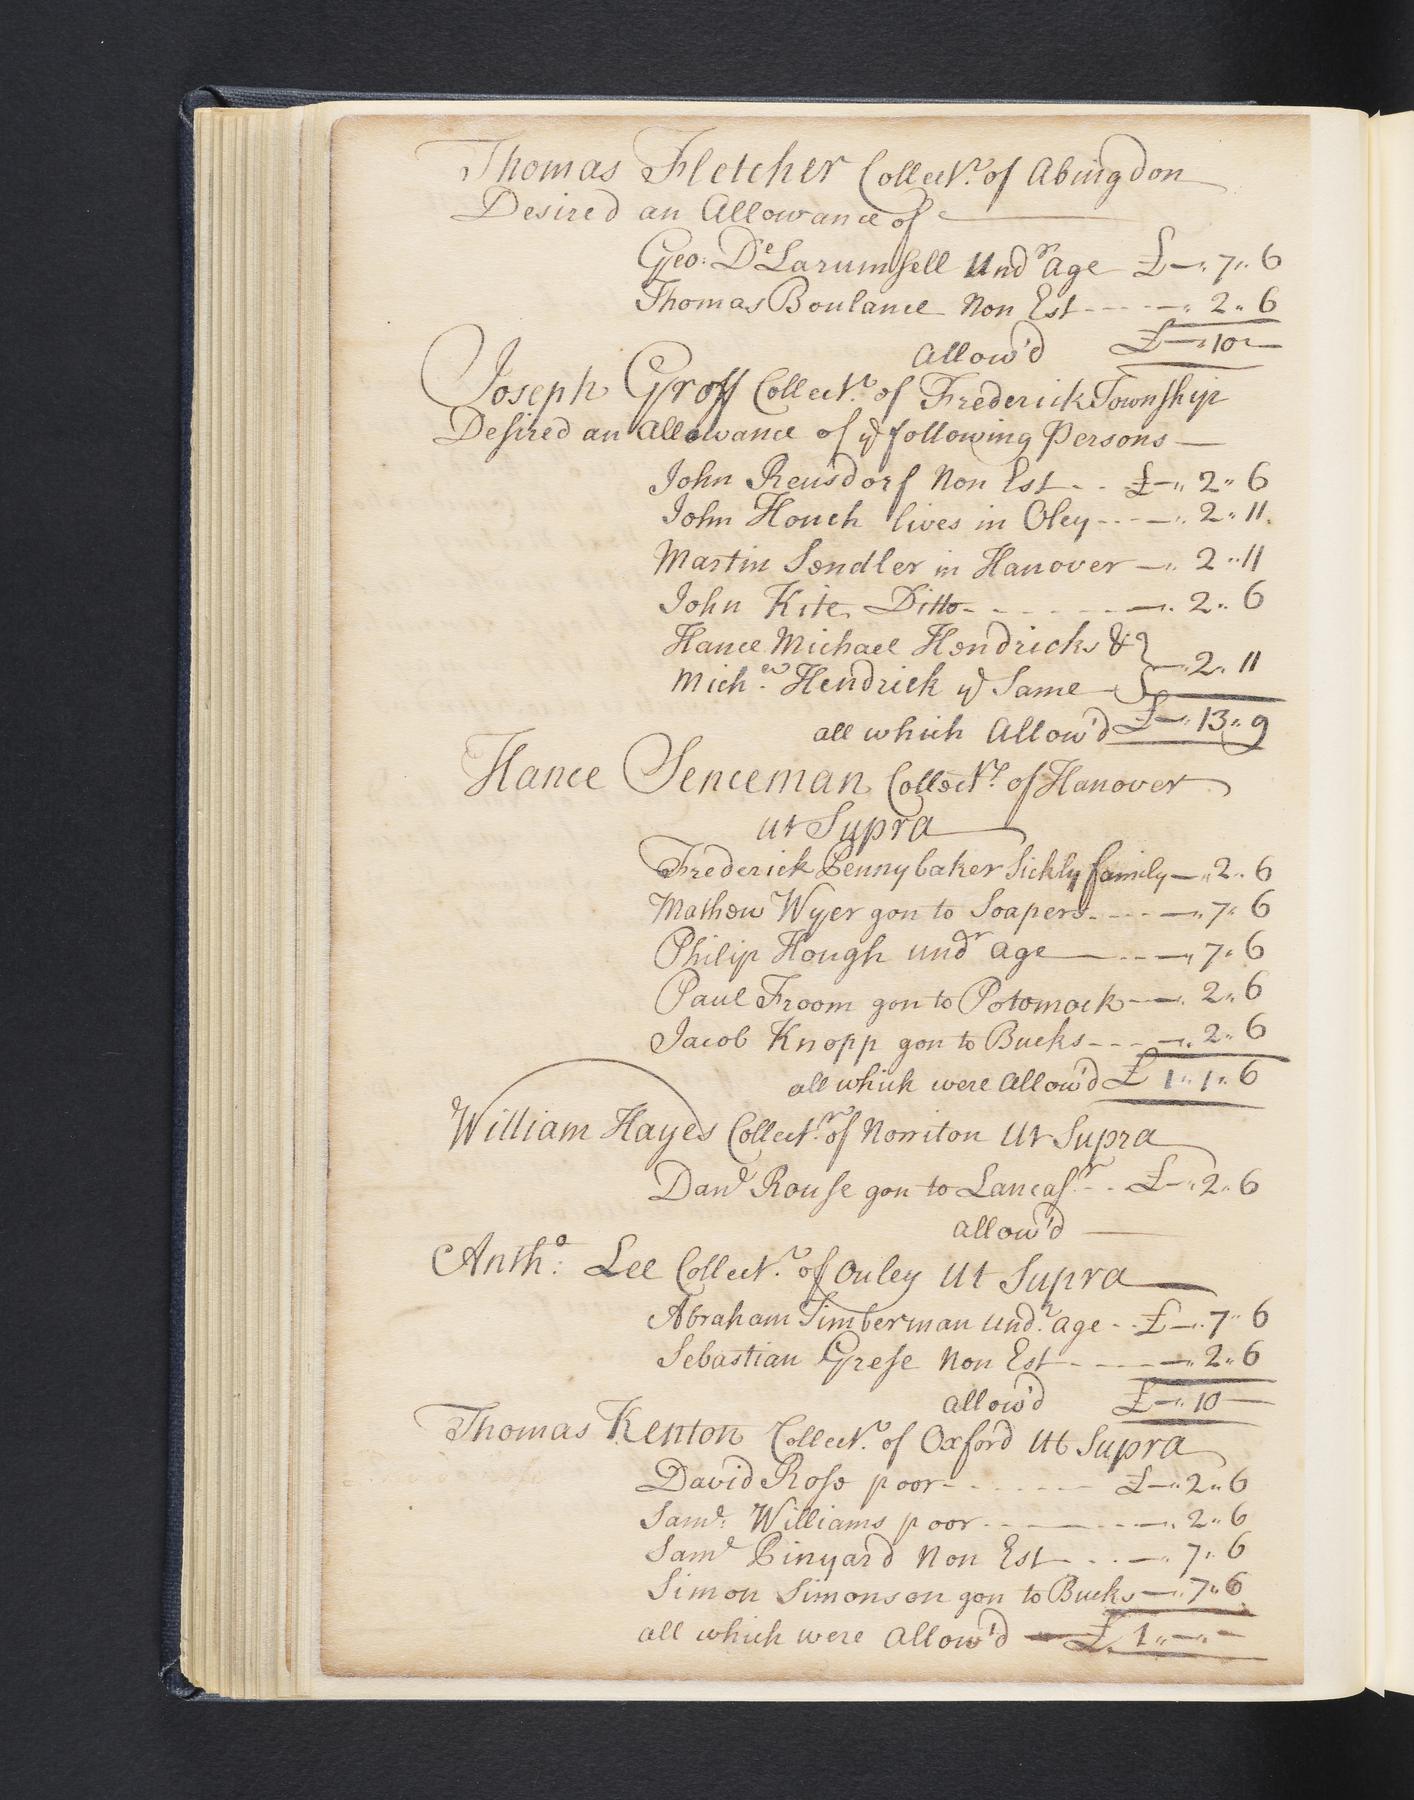 Thomas Fletcher Collectr. of Abingdon
Desired an Allowance of
Geo: De Larumsell Undr Age £—"7"6
Thomas Boulance Non Est - - - - —"2"6
Allow'd £—"10"—
Joseph Groff Collectr. of Frederick Township
Desired an Allowance of ye following Persons —
John Reusdorf Non Est - - £—"2"6
John Houch lives in Oley - - - —"2"11
Martin Sendler in Hanover —"2"11
John Kite Ditto - - - - - —"2"6
Hance Michael Hendricks &
Mich.ew Hendrick ye Same } —"2"11
all which Allow'd £—"13"9
Hance Senceman Collectr. of Hanover
ut Supra
Frederick Pennybaker Sickly family —"2"6
Mathew Wyer gon to Soapers - - - —"7"6
Philip Hough undr age — - - —"7"6
Paul Froom gon to Potomack - —"2"6
Jacob Knopp gon to Bucks - - - —"2"6
all which were Allow'd £ 1"1"6
William Hayes Collectr. of Norriton Ut Supra
Danl Rouse gon to Lancasr. - - £—"2"6
allow'd —
Antho: Lee Collectr. of Ouley Ut Supra
Abraham Timberman undr. age - - £—"7"6
Sebastian Grese Non Est - - - —"2"6
allow'd £—"10—
Thomas Kenton Collectr. of Oxford Ut Supra
David Rose poor - - - - - - £—"2"6
Saml: Williams poor - - — - - —"2"6
Saml Pinyard Non Est - - - —"7"6
Simon Simonson gon to Bucks —"7"6
all which were Allow'd — £ 1"—"—